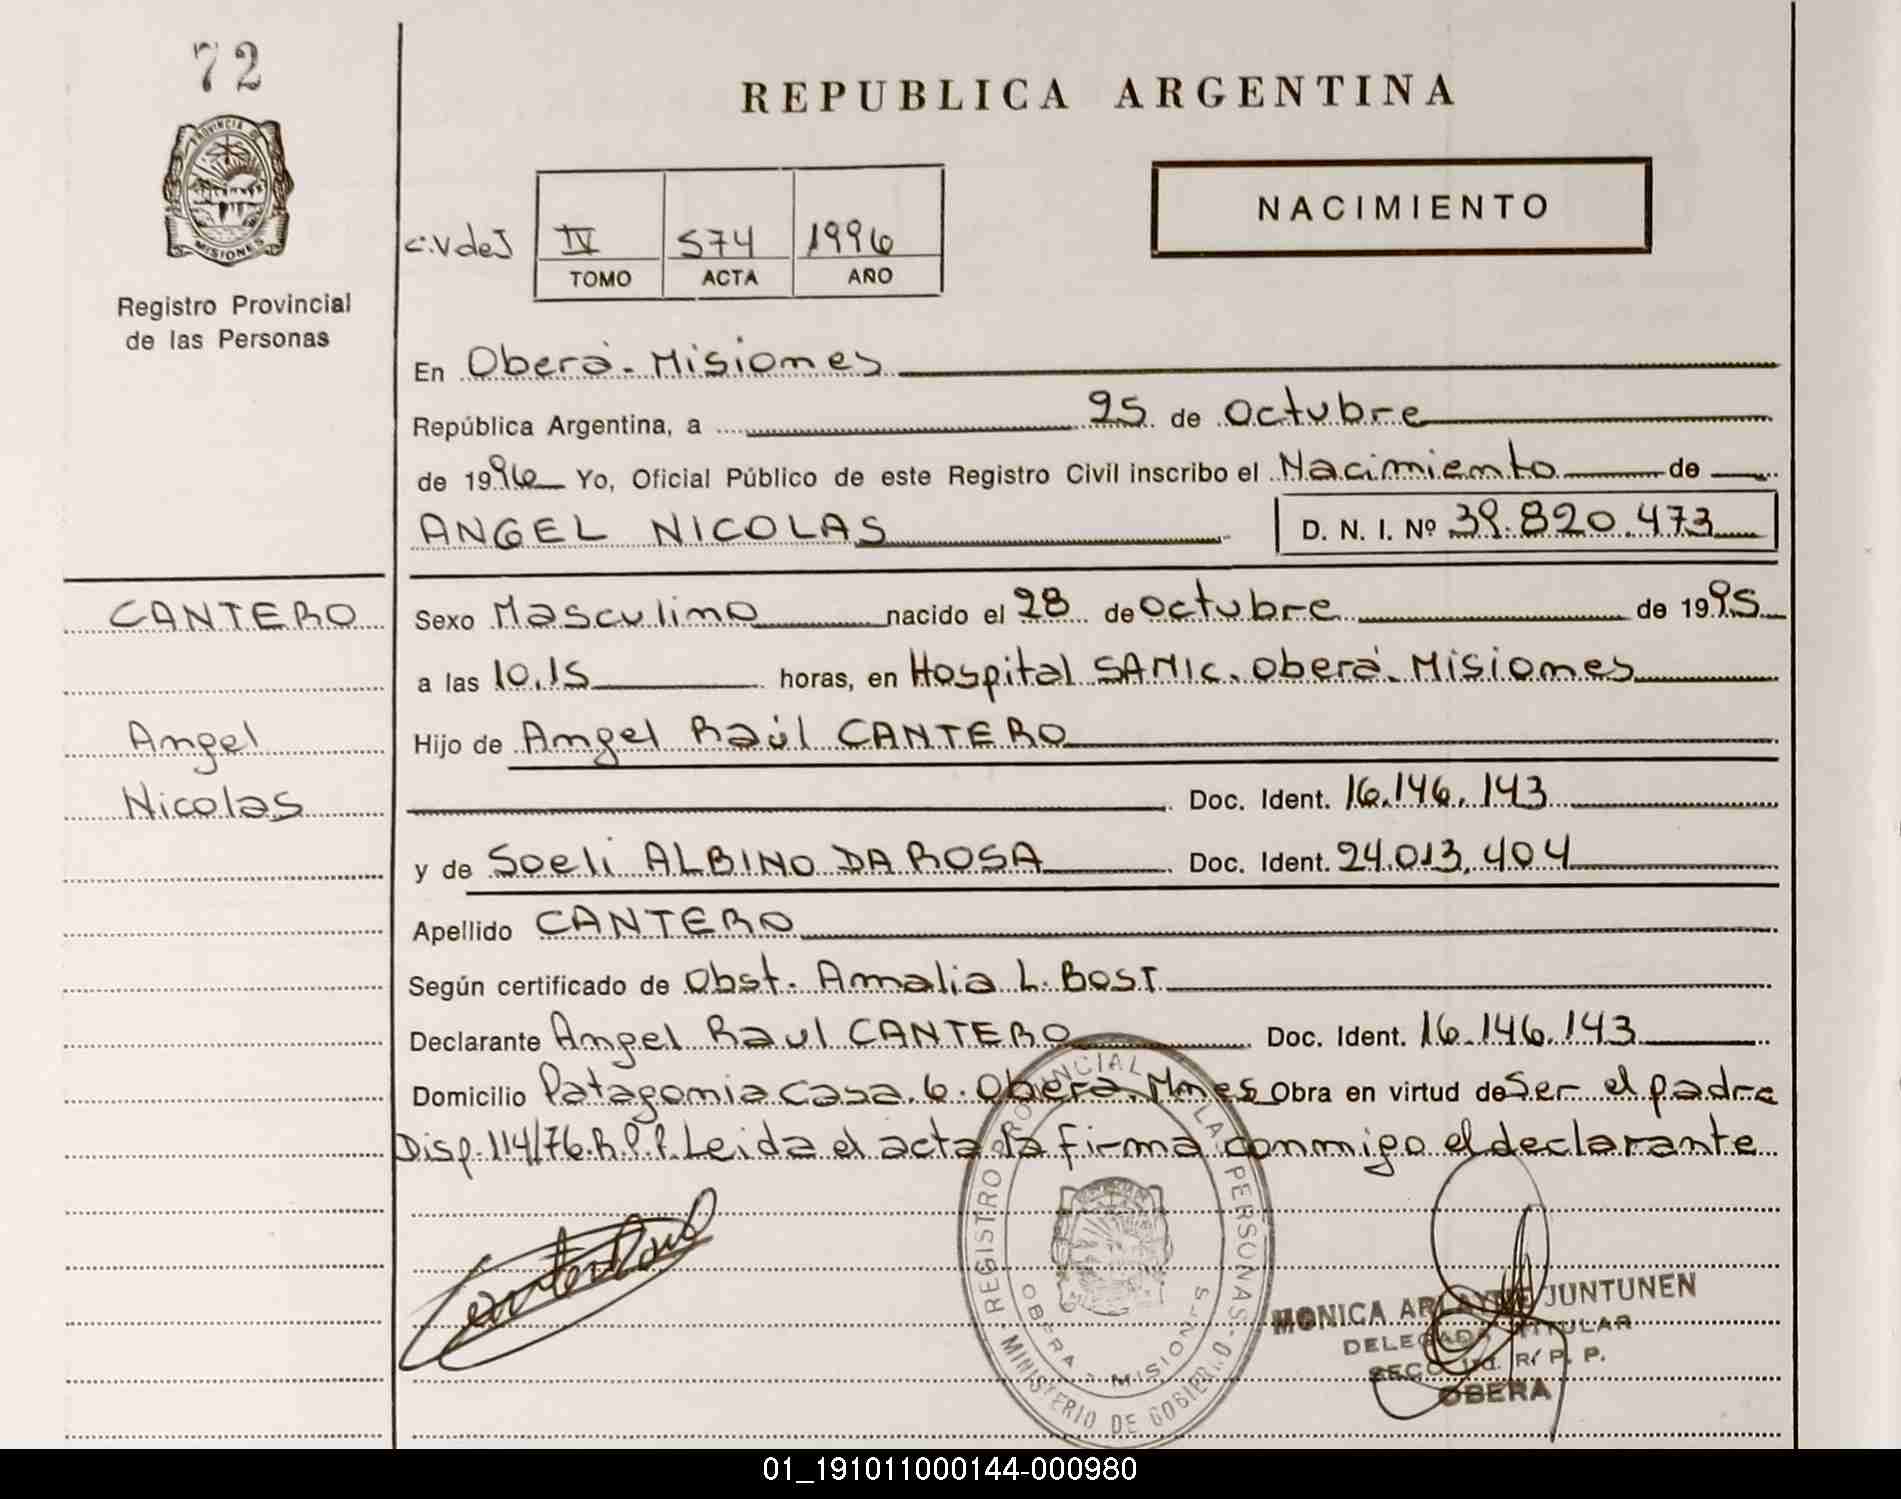 72
PROVINCIA DE
MISIONES
Registro Provincial
de las Personas
REPUBLICA ARGENTINA
NACIMIENTO
C.VdeJ IV 574 1996
TOMO ACTA AÑO
En Oberá - Misiones
República Argentina, a 25 de Octubre
de 1996 Yo, Oficial Público de este Registro Civil inscribo el Nacimiento de
ANGEL NICOLAS D. N. I. Nº 39.820.473
CANTERO
Angel
Nicolas
Sexo Masculino nacido el 28 de Octubre de 1995
a las 10,15 horas, en Hospital SAMIC. Oberá. Misiones
Hijo de Angel Raúl CANTERO
Doc. Ident. 16.146.143
y de Soeli ALBINO DA ROSA Doc. Ident. 24.013.404
Apellido CANTERO
Según certificado de Obst. Amalia L. BOST
Declarante Angel Raul CANTERO Doc. Ident. 16.146.143
Domicilio Patagonia casa. 6. Oberá. Mnes Obra en virtud de Ser el padre
Disp. 114/76. R.P.P. Leida el acta la firma conmigo el declarante
REGISTRO PROVINCIAL LAS PERSONAS - MINISTERIO DE GOBIERNO
OBERA - MISIONES
MONICA JUNTUNEN
DELEGADA TITULAR
R. P. P.
OBERA
01_191011000144-000980